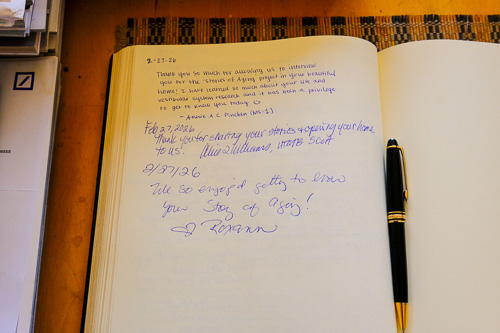 2-27-26
Thank you so much for allowing us to interview
you for the "Stories of Aging project in your beautiful
home! I have learned so much about your life and
vestibular system research and it was both a privilege
to get to know you today.
- Annie A.C. (MS-1)
Feb 27, 2026
Thank you for sharing your stories & opening your home
to us! Williams,
2/27/26
We so enjoyed getting to know
your Story of Aging!
Roxann